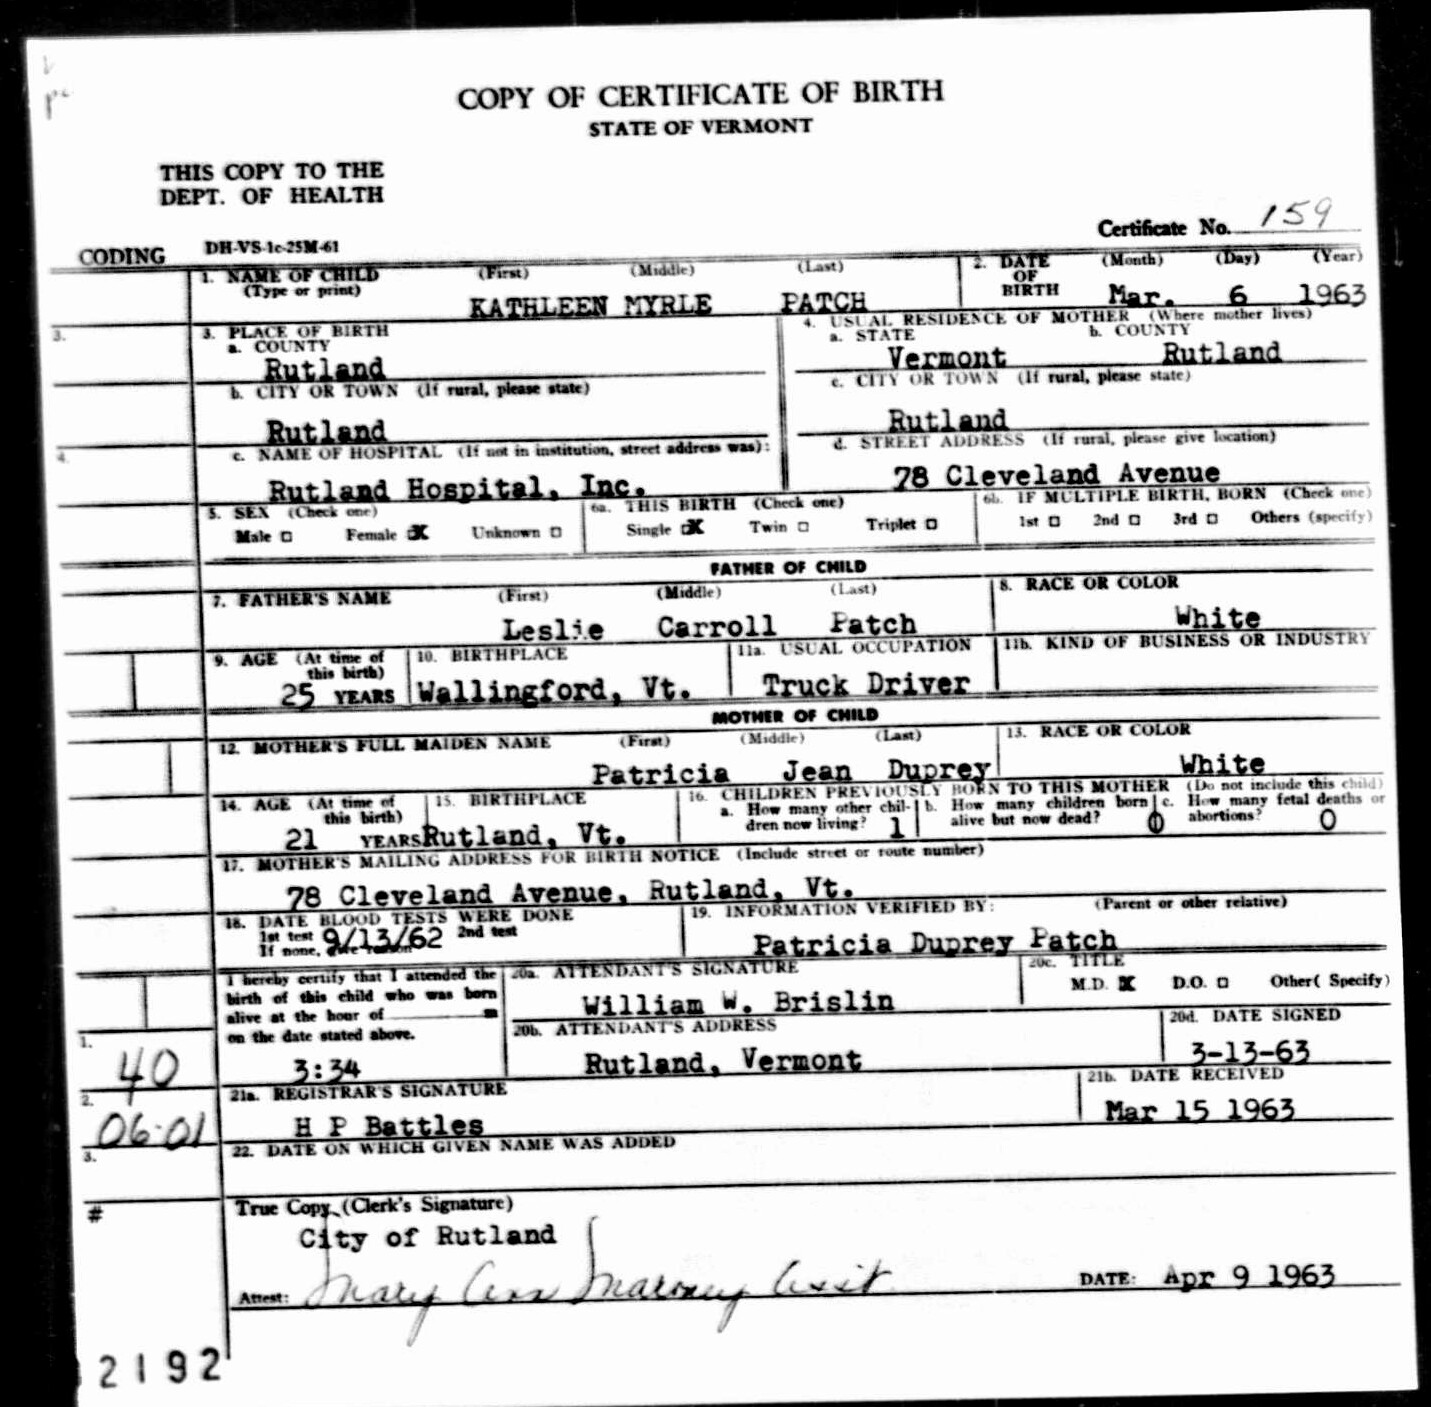 COPY OF CERTIFICATE OF BIRTH
STATE OF VERMONT
THIS COPY TO THE
DEPT. OF HEALTH
Certificate No. 159
CODING DH-VS-1c-25M-61
1. NAME OF CHILD (First) (Middle) (Last) 2. DATE OF BIRTH (Month) (Day) (Year)
(Type or print)
KATHLEEN MYRLE PATCH Mar. 6 1963
3. 3. PLACE OF BIRTH 4. USUAL RESIDENCE OF MOTHER (Where mother lives)
a. COUNTY a. STATE b. COUNTY
Rutland Vermont Rutland
b. CITY OR TOWN (If rural, please state) c. CITY OR TOWN (If rural, please state)
Rutland Rutland
4. c. NAME OF HOSPITAL (If not in institution, street address was): d. STREET ADDRESS (If rural, please give location)
Rutland Hospital, Inc. 78 Cleveland Avenue
5. SEX (Check one) 6a. THIS BIRTH (Check one) 6b. IF MULTIPLE BIRTH, BORN (Check one)
Male □ Female X Unknown □ Single X Twin □ Triplet □ 1st □ 2nd □ 3rd □ Others (specify)
FATHER OF CHILD
7. FATHER'S NAME (First) (Middle) (Last) 8. RACE OR COLOR
Leslie Carroll Patch White
9. AGE (At time of this birth) 10. BIRTHPLACE 11a. USUAL OCCUPATION 11b. KIND OF BUSINESS OR INDUSTRY
25 YEARS Wallingford, Vt. Truck Driver
MOTHER OF CHILD
12. MOTHER'S FULL MAIDEN NAME (First) (Middle) (Last) 13. RACE OR COLOR
Patricia Jean Duprey White
14. AGE (At time of this birth) 15. BIRTHPLACE 16. CHILDREN PREVIOUSLY BORN TO THIS MOTHER (Do not include this child)
a. How many other children now living? 1 b. How many children born alive but now dead? 0 c. How many fetal deaths or abortions? 0
21 YEARS Rutland, Vt.
17. MOTHER'S MAILING ADDRESS FOR BIRTH NOTICE (Include street or route number)
78 Cleveland Avenue, Rutland, Vt.
18. DATE BLOOD TESTS WERE DONE 19. INFORMATION VERIFIED BY: (Parent or other relative)
1st test 9/13/62 2nd test
If none, give reason Patricia Duprey Patch
I hereby certify that I attended the 20a. ATTENDANT'S SIGNATURE 20c. TITLE
birth of this child who was born William W. Brislin M.D. X D.O. □ Other( Specify)
alive at the hour of m
on the date stated above. 20b. ATTENDANT'S ADDRESS 20d. DATE SIGNED
1. 40 3:34 Rutland, Vermont 3-13-63
2. 21a. REGISTRAR'S SIGNATURE 21b. DATE RECEIVED
06-01 H P Battles Mar 15 1963
3. 22. DATE ON WHICH GIVEN NAME WAS ADDED
# True Copy (Clerk's Signature)
City of Rutland
Attest: Mary Ann Maroney Asst. DATE: Apr 9 1963
2192